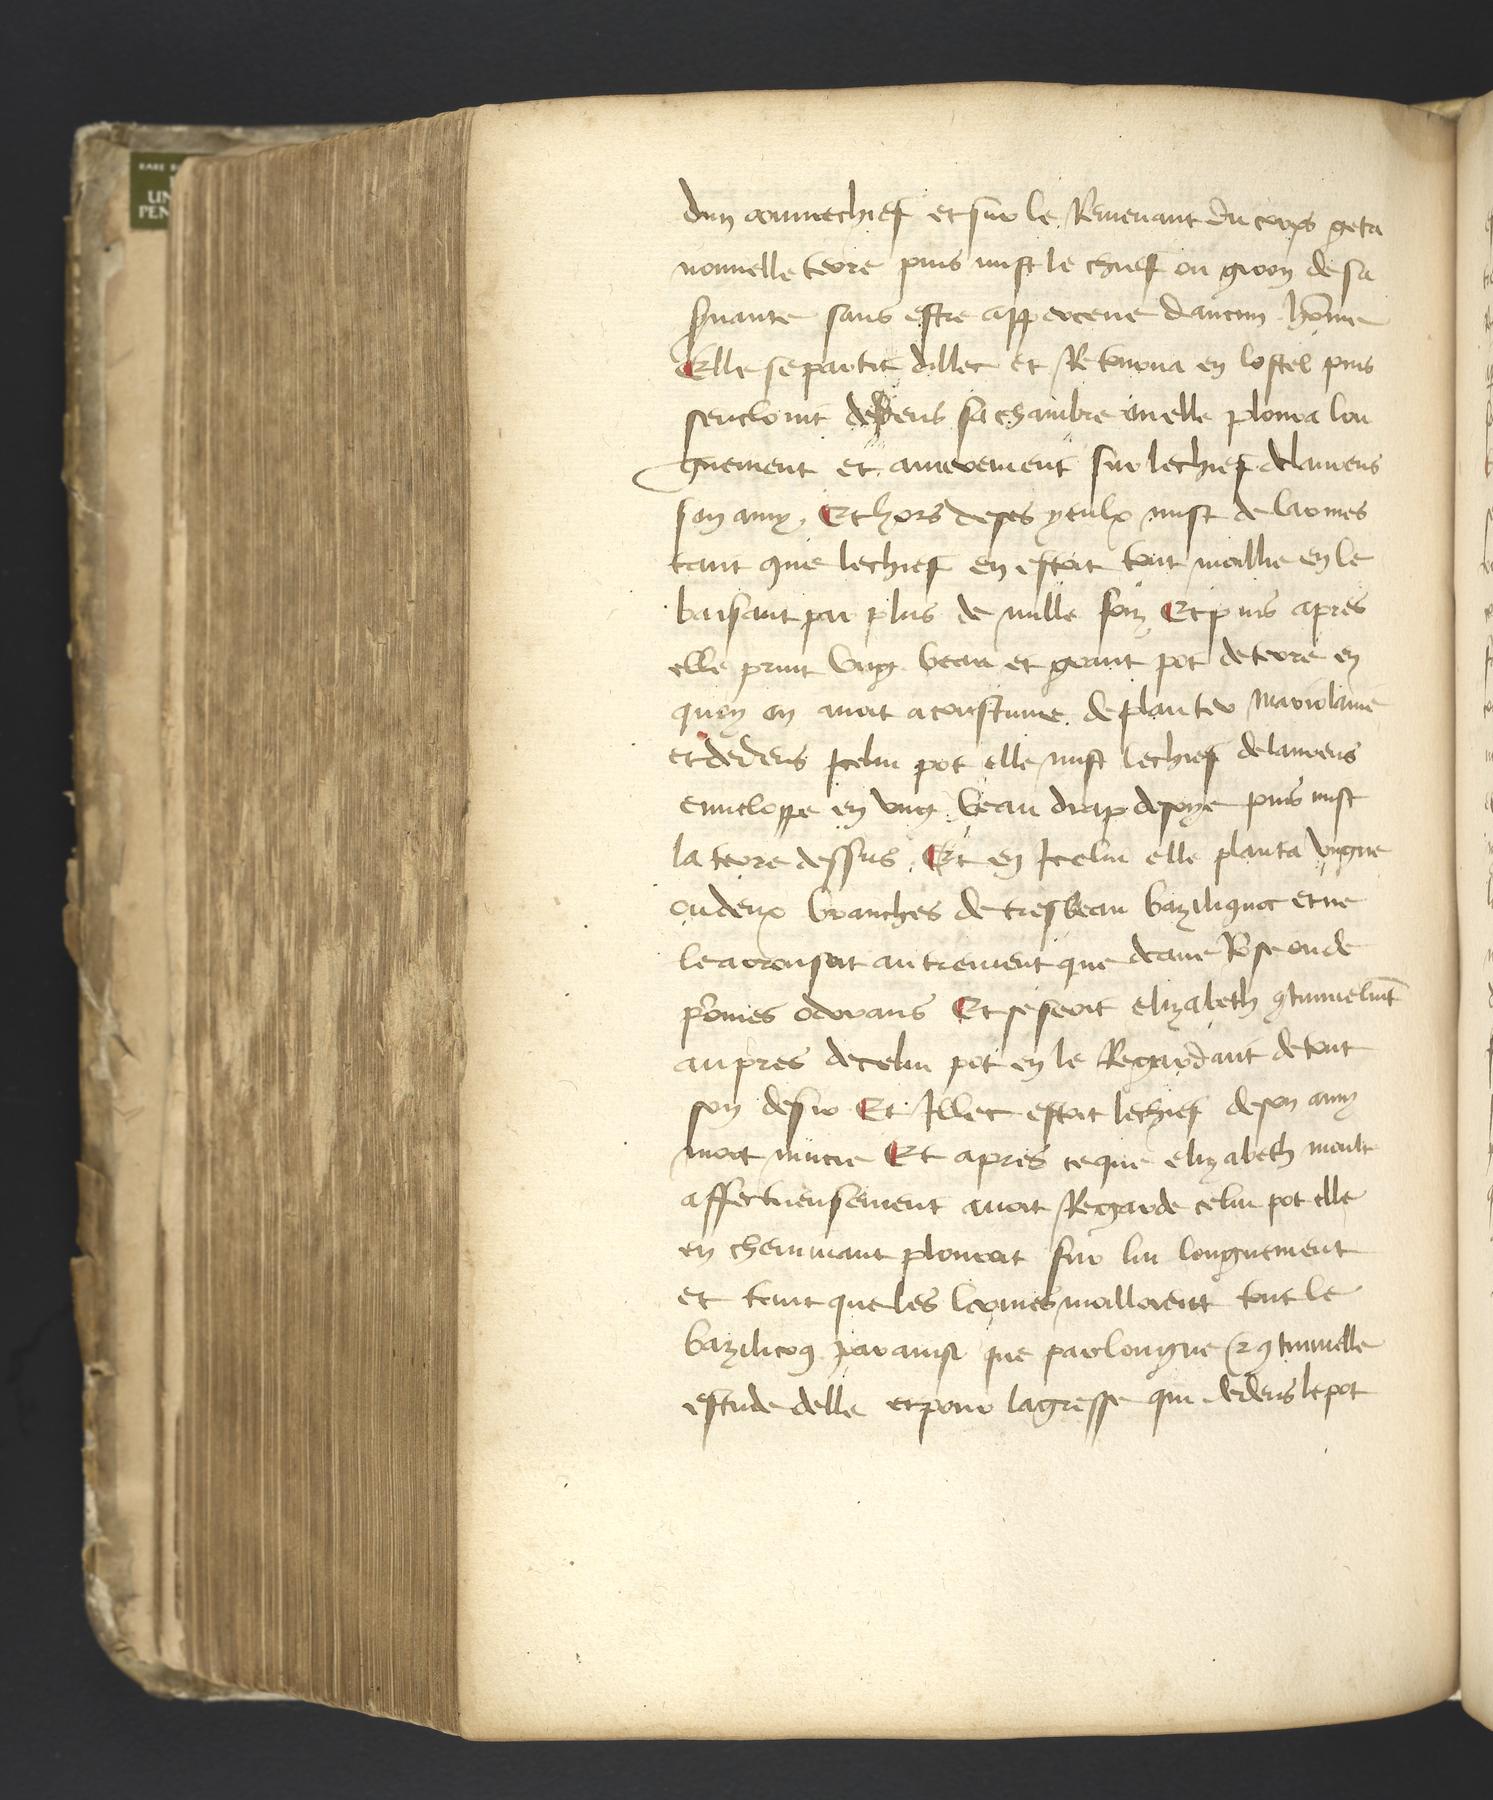 RARE B
UN
PEN
dun couurechief et sur le Remenant du corps geta
nouuelle terre puis mist le chief ou giron de sa
seruante sans estre apperceue daucun home
Elle se partit dillec et Retourna en lostel puis
senclouit dedens sa chambre ou elle ploura lon
guement et amerement sur le chief de laurens
son amy. Et hors de ses yeulx mist de larmes
tant que le chief en estoit tout moillie en le
baisant par plus de mille foiz Et puis apres
elle print vng beau et grant pot de terre en
quoy on auoit acoustume de planter mariolaine
et dedens Icelui pot elle mist le chief de laurens
enueloppe en vng beau drap de soye puis mist
la terre dessus. Et en Icelui elle planta vngne
ou deux branches de tresbeau baziliquoc et ne
le arrousoit autrement que deaue Rose ou de
pomes odorans Et se seoit elizabeth 9tinuelmt
aupres de celui pot en le Regardant de tout
son desir Et Illec estoit le chief de son amy
mort mucie Et apres ce que elizabeth moult
affectueusement auoit Regarde celui pot elle
en cheminant plouroit sur lui longuement
et tant que les lermes moilloient tout le
bazilicoq par ainsi que par longue & 9tinuelle
estude delle et pour la gresse qui dedens le pot